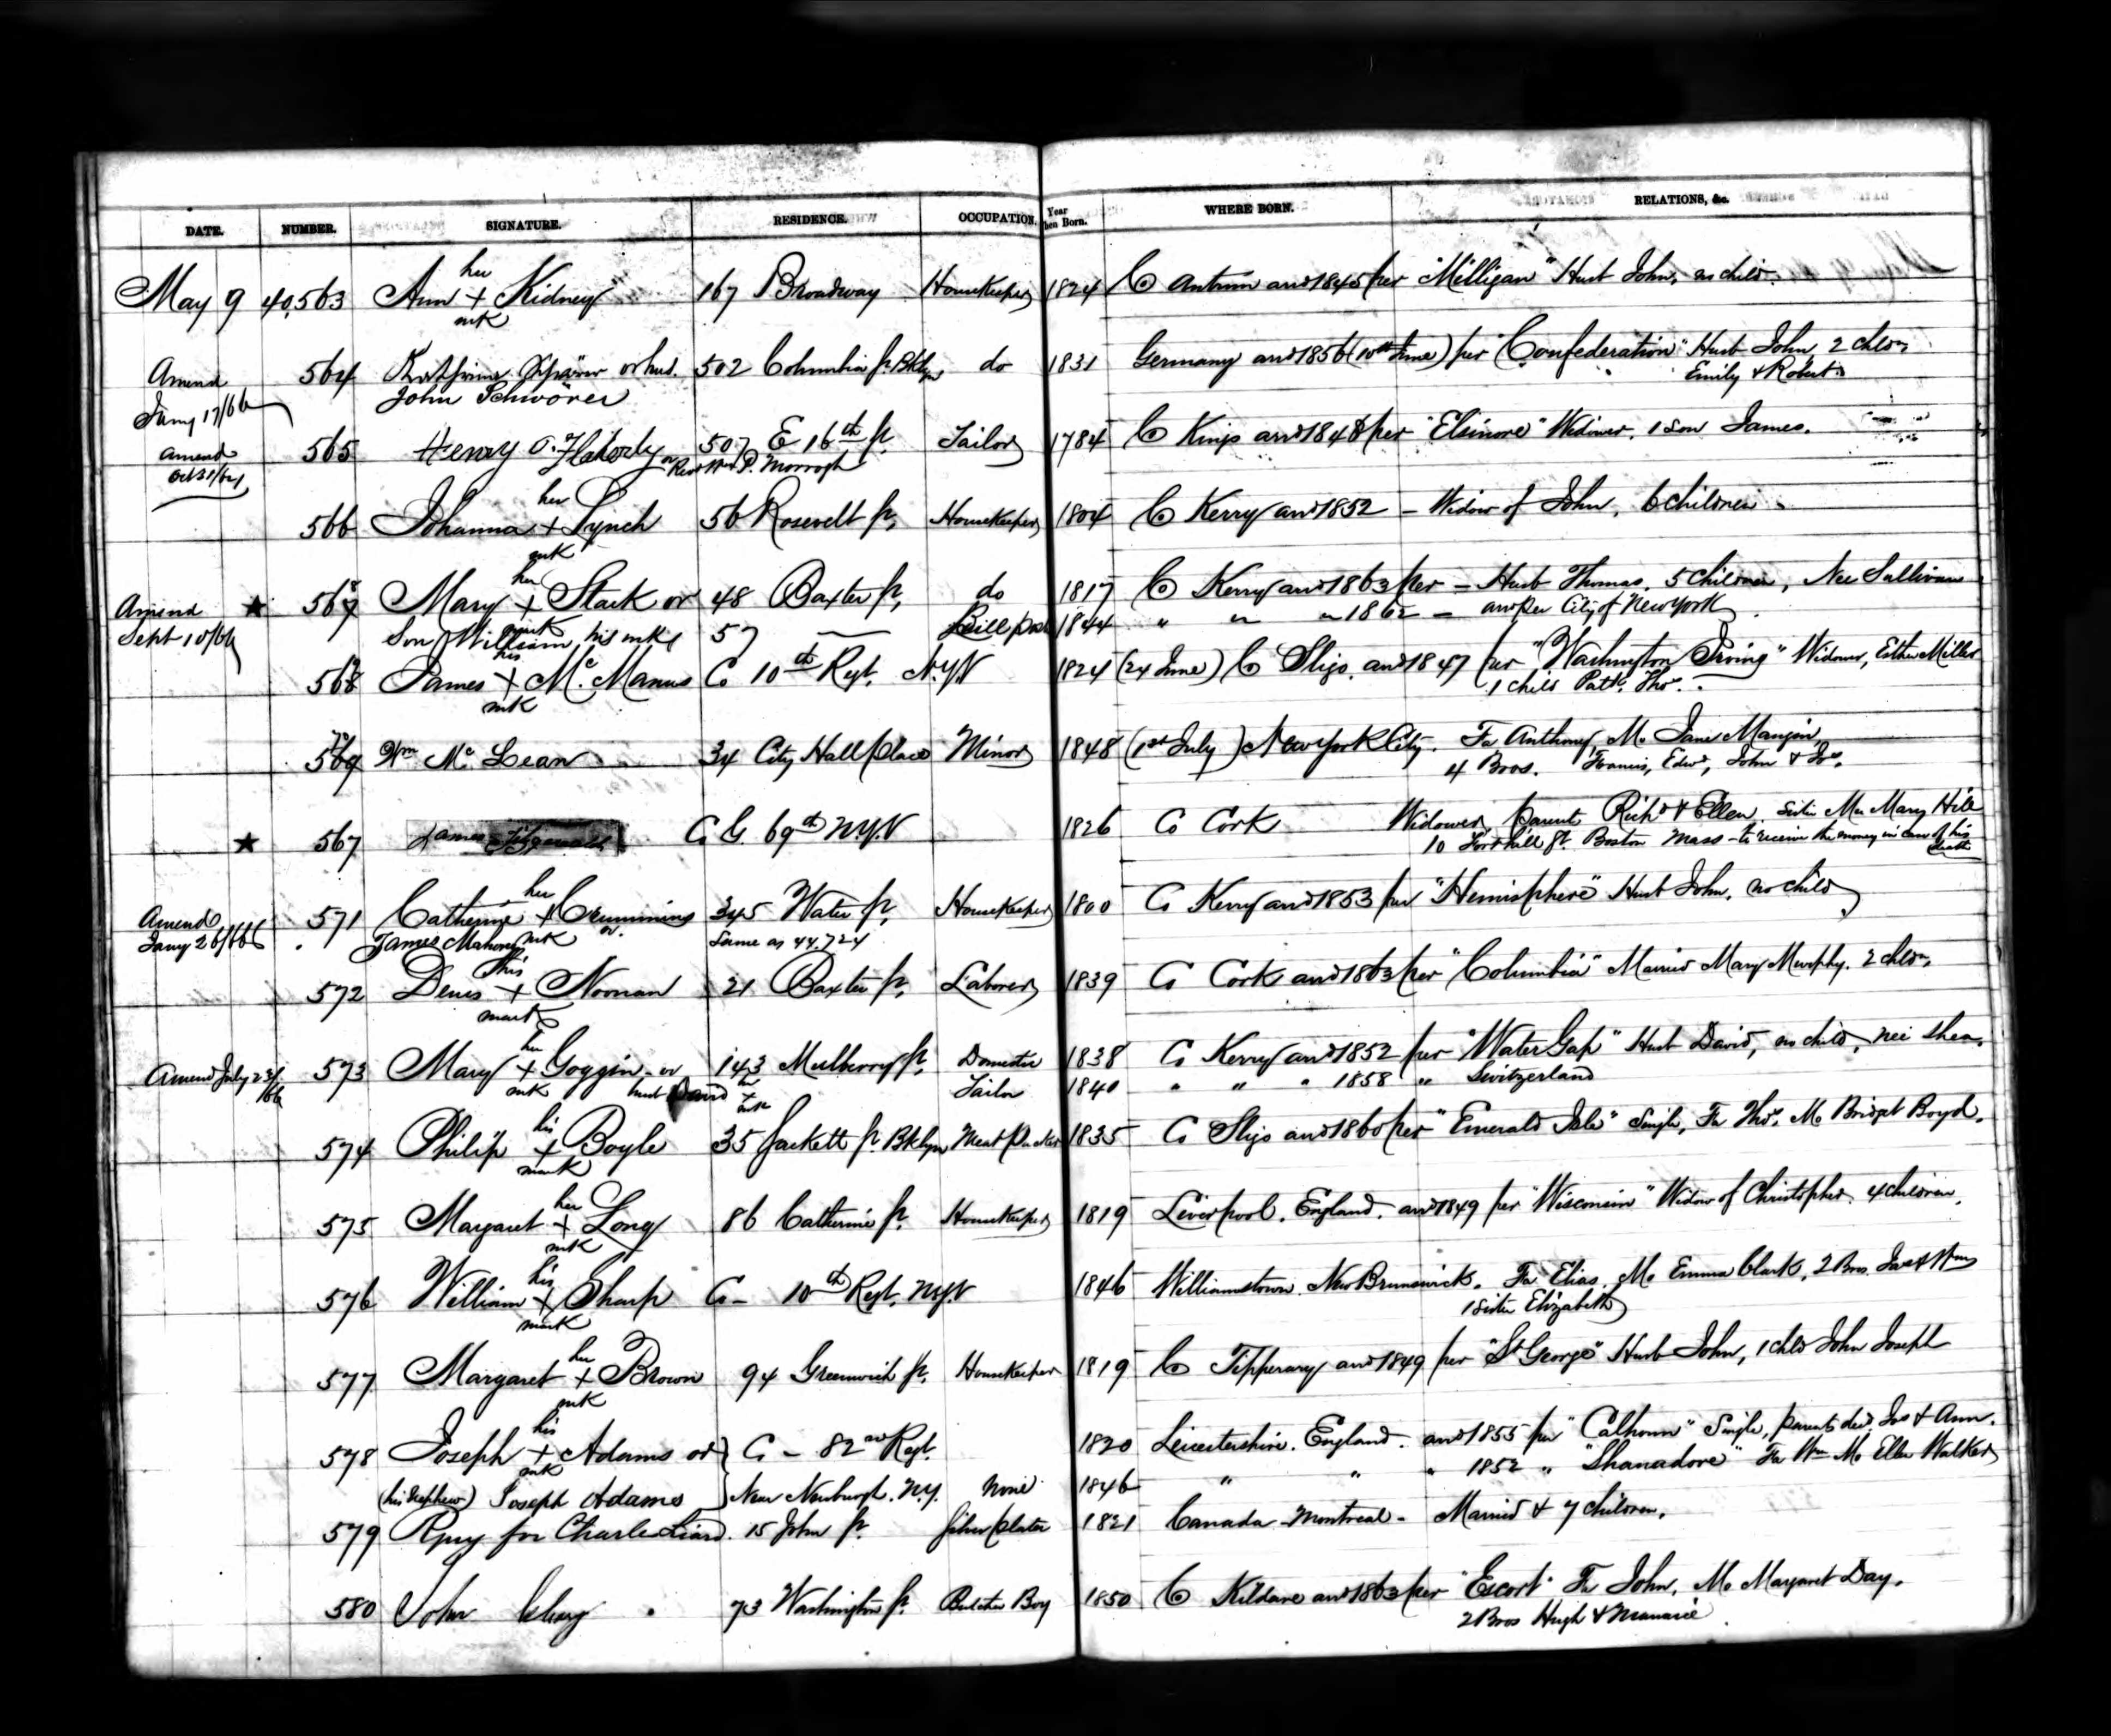 DATE. NUMBER. SIGNATURE. RESIDENCE. OCCUPATION. Year When Born. WHERE BORN. RELATIONS, &c.
her
May 9 40,563 Ann + Kidney 167 Broadway Housekeeper 1824 Co Antrim arrd 1845 per "Milligan" Husb John, no child.
mk
Amend 564 or hus. 502 Columbia st Bklyn do 1831 Germany arrd 1856 (10th June) per "Confederation" Husb John, 2 chldn
Jany 17/66 John Schwörer Emily & Robert
Amend 565 Henry O'Flaherty 507 E 16th st. Tailor 1784 Co Kings arrd 1848 per "Elsinore" Widower, 1 son James.
Oct 31/64 or Revd Wm P. Morrogh
her
566 Johanna + Lynch 56 Rosevelt st, Housekeeper 1804 Co Kerry arrd 1852 – Widow of John, 6 children
mk
her
Amend ★ 568 Mary + Stack or 48 Baxter st, do 1817 Co Kerry arrd 1863 per – Husb Thomas, 5 children, Nee Sullivan
Sept 10/66 mark
Son William his mk 57 — Bill post 1844 " " " 1862 – arr per City of New York
his
569 James + McManus Co 10th Regt. N.Y.V 1824 (24 June) Co Sligo. arrd 1847 per "Washington Irving" Widower, Esther Miller
mk 1 child Patk. Thos.
570 Wm McLean 34 City Hall place Minor 1848 (1st July) New York City. Fa Anthony, Mo Jane Mangin,
4 Bros. Francis, Edwd, John & Jos.
★ 567 James Fitzgerald Co G. 69th N.Y.V 1826 Co Cork Widower, Parents Richd & Ellen. Sister Mrs Mary Hill
10 Forthill St. Boston Mass – to receive the money in case of his death
her
Amend 571 Catherine + Crummins or 345 Water st, Housekeeper 1800 Co Kerry arrd 1853 per "Hemisphere" Husb John, no child
Jany 26/66 James Mahony mk Same as 44.724
his
572 Denis + Noonan 21 Baxter st, Laborer 1839 Co Cork arrd 1863 per "Columbia" Married Mary Murphy. 2 chldn,
mark
her
Amend July 23/66 573 Mary + Goggin – or 143 Mulberry st, Domestic 1838 Co Kerry arrd 1852 per "Water Gap" Husb David, no child, nee Shea,
mk husb David his + mk Tailor 1840 " " " 1858 " Switzerland
his
574 Philip + Boyle 35 Jackett st. Bklyn Meat packer 1835 Co Sligo arrd 1860 per "Emerald Isle" Single, Fa Thos, Mo Bridget Boyd.
mark
her
575 Margaret + Long 86 Catherine st. Housekeeper 1819 Liverpool, England. arrd 1849 per "Wisconsin" Widow of Christopher. 4 children.
mk
his
576 William + Sharp Co – 10th Regt. N.Y.V 1846 Williamstown. New Brunswick. Fa Elias, Mo Emma Clark, 2 Bros. Jas & Wm
mark 1 Sister Elizabeth
her
577 Margaret + Brown 94 Greenwich st. Housekeeper 1819 Co Tipperary arrd 1849 per "St George" Husb John, 1 chld John Joseph
mk
his
578 Joseph + Adams or } Co – 82nd Regt. 1820 Leicestershire. England. arrd 1855 per "Calhoun" Single, parents decd. Jos & Ann.
mk
(his Nephew) Joseph Adams } Near Newburgh. N.Y. None 1846 " " " 1852 " "Shanadore" Fa Wm Mo Ellen Walker
579 for Charles Liard. 15 John st. Silver plater 1821 Canada – Montreal – Married & 7 children.
580 John Cleary 73 Washington st. Boy 1850 Co Kildare arrd 1863 per "Escort" Fa John, Mo Margaret Day.
2 Bros Hugh &